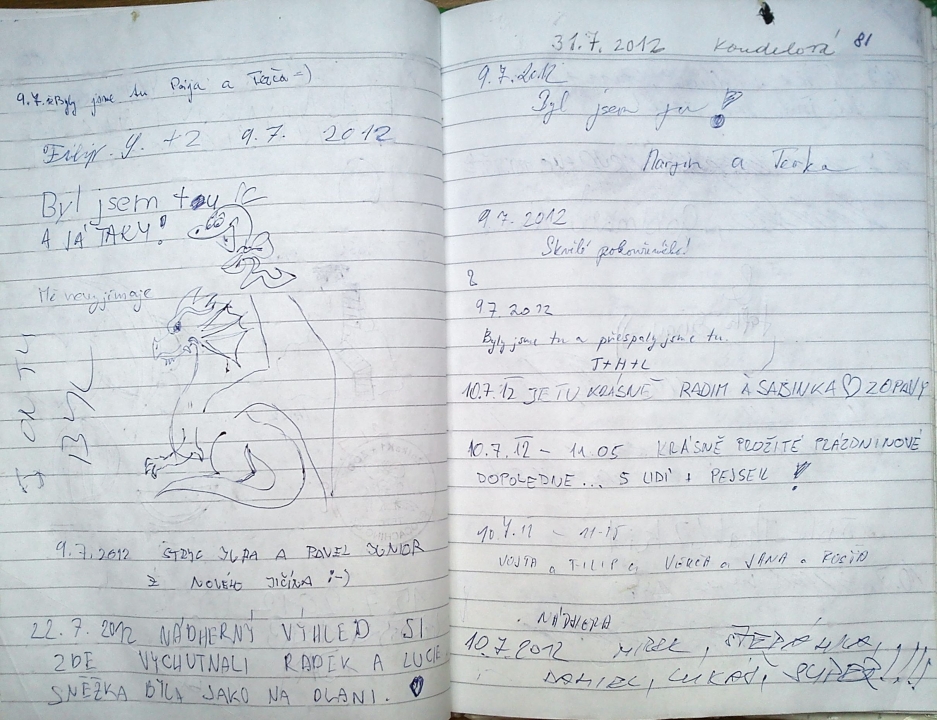 9.7. Byly jsme tu Pája a Terča =)
Filip. Y. +2 9.7. 2012
Byl jsem tu
A JÁ TAKY!
Mě nevyjímaje
BYL
9.7.2012 STRÝC JURA A PAVEL JUNIOR
Z NOVÉHO JIČÍNA :-)
22.7.2012 NÁDHERNÝ VÝHLED SI
ZDE VYCHUTNALI RADÍK A LUCIE
SNĚŽKA BYLA JAKO NA DLANI. ♥
31.7.2012 Koudelová 81
9.7.2012
Byl jsem tu!
Martin a Terka
9.7.2012
Skvělé
9.7.2012
Byly jsme tu a přespaly jsme tu.
J+H+L
10.7.12 JE TU KRÁSNĚ RADIM A SABINKA ♡ Z OPAVY
10.7.12 – 11.05 KRÁSNĚ PROŽITÉ PRÁZDNINOVÉ
DOPOLEDNE... 5 LIDÍ + PEJSEK!
10.7.12 – 11.15
VOJTA a FILIP a VERČA a JANA a
NÁDHERA
10.7.2012 MIREK, ŠTĚPÁNKA,
DANIEL, LUKÁŠ, SUPER!!!